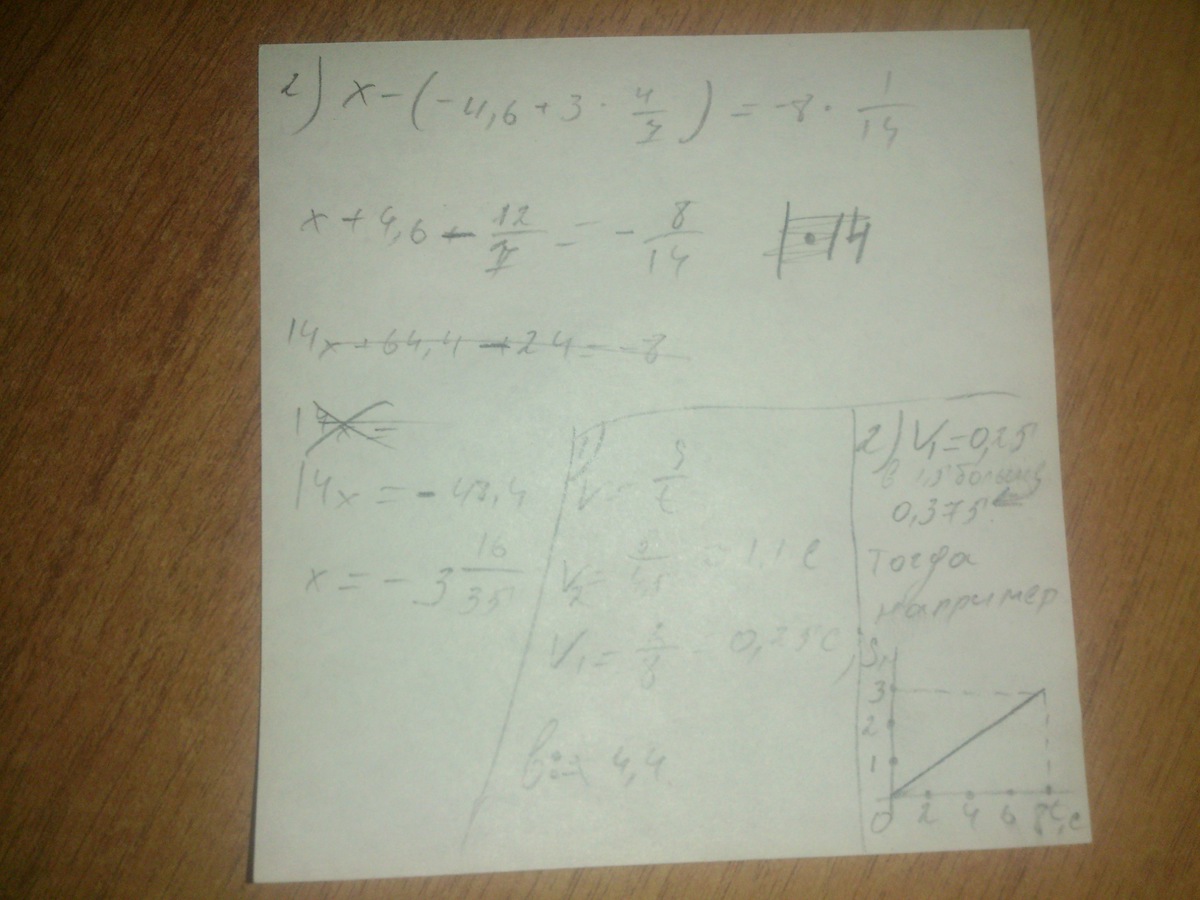 2) x - (-4,6 + 3 · 4/7) = -8 · 1/14
x + 4,6 - 12/7 = - 8/14 | · 14
14x + 64,4 - 24 = -8
14x =
14x = - 48,4
x = - 3 16/35
1)
V = S/t
V₂ = = 1,1 с
V₁ = 0,25 с
в 4,4
2) V₁ = 0,25
в 1,5 больше
0,375 ←
тогда
например
S,
3
2
1
0 2 4 6 8 t, c